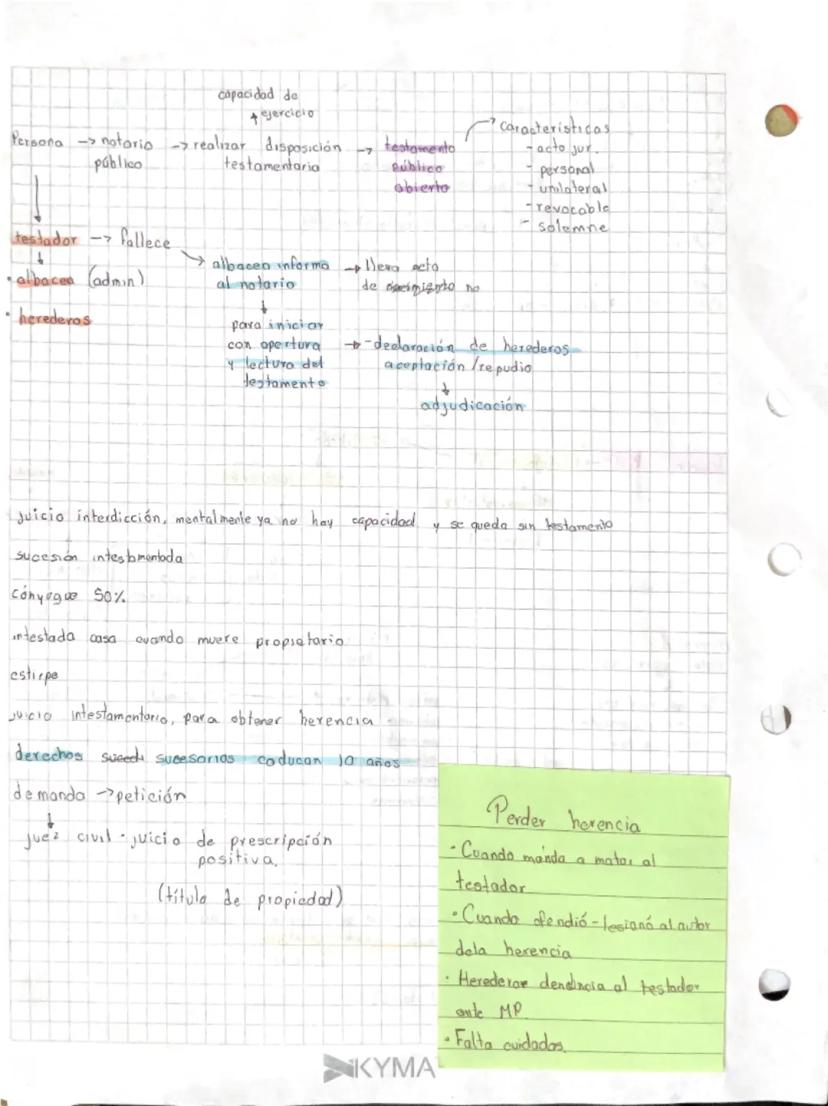 capacidad de
ejercicio
Persona → notario → realizar disposición → testamento
público testamentaria público
abierto
características
- acto jur.
- personal
- unilateral
- revocable
- solemne
testador → fallece
• albacea (admin)
• herederos
albacea informa → lleva acta
al notario de no
para iniciar
con apertura → - declaración de herederos
y lectura del aceptación / repudio
testamento
adjudicación
juicio interdicción, mentalmente ya no hay capacidad y se queda sin testamento
sucesión intestamentada
cónyugue 50%
intestada casa cuando muere propietario
estirpe
juicio intestamentario, para obtener herencia
derechos sucesorios caducan 10 años
demanda → petición
juez civil - juicio de prescripción
positiva.
(título de propiedad)
Perder herencia
• Cuando manda a matar al
testador
• Cuando ofendió - lesionó al autor
dela herencia
• Herederos denuncia al testador
ante MP
• Falta cuidados.
KYMA